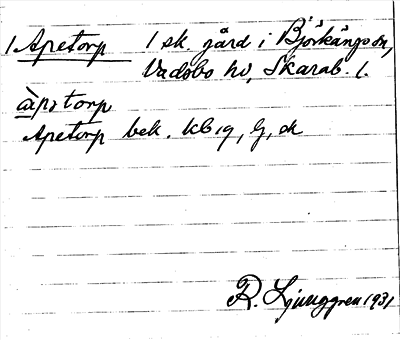 1 Apetorp 1 sk. gård i Björkängs sn,
Vadsbo hd, Skarab. l.
àpǝtorp
Apetorp bek. kb 19, G, sk
R. Ljunggren 1931